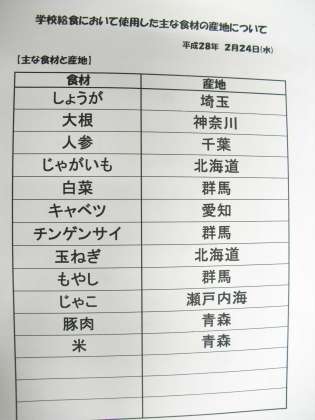 学校給食において使用した主な食材の産地について
平成28年 2月24日(水)
【主な食材と産地】
食材 産地
しょうが 埼玉
大根 神奈川
人参 千葉
じゃがいも 北海道
白菜 群馬
キャベツ 愛知
チンゲンサイ 群馬
玉ねぎ 北海道
もやし 群馬
じゃこ 瀬戸内海
豚肉 青森
米 青森